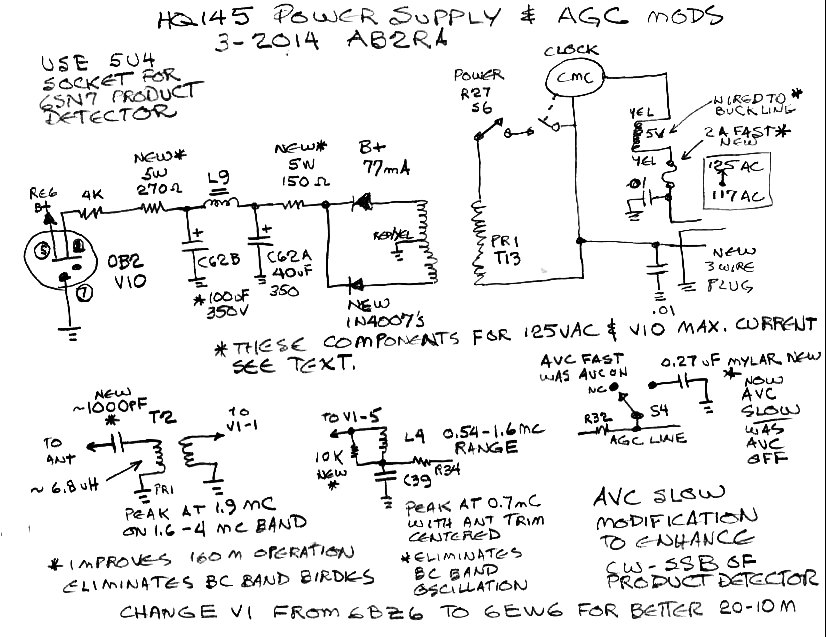 HQ145 POWER SUPPLY & AGC MODS
3-2014 AB2RA
USE 5U4
SOCKET FOR
6SN7 PRODUCT
DETECTOR
CLOCK
CMC
POWER
R27
S6
YEL
5W
YEL
WIRED TO *
BUCKLING
2A FAST *
NEW
125 AC
117 AC
.01
NEW*
5W
270Ω
L9
NEW*
5W
150Ω
B+
77mA
REG
B+
4K
5
7
OB2
V10
+
C62B
*100UF
350V
+
C62A
40UF
350
RED/YEL
NEW
1N4007'S
PRI
T13
NEW
3 WIRE
PLUG
.01
*THESE COMPONENTS FOR 125VAC & V10 MAX. CURRENT
SEE TEXT.
NEW
~1000PF
*
T2
TO
V1-1
TO
ANT
~6.8UH
PRI
PEAK AT 1.9 MC
ON 1.6-4 MC BAND
*IMPROVES 160M OPERATION
ELIMINATES BC BAND BIRDIES
TO V1-5
L4
0.54-1.6MC
RANGE
10K
NEW
*
C39
R34
PEAK AT 0.7MC
WITH ANT TRIM
CENTERED
*ELIMINATES
BC BAND
OSCILLATION
AVC FAST
WAS AVC ON
NC
0.27UF MYLAR NEW
*
S4
R32
AGC LINE
NOW
AVC
SLOW
WAS
AVC
OFF
AVC SLOW
MODIFICATION
TO ENHANCE
CW-SSB OF
PRODUCT DETECTOR
CHANGE V1 FROM 6BZ6 TO 6EW6 FOR BETTER 20-10M